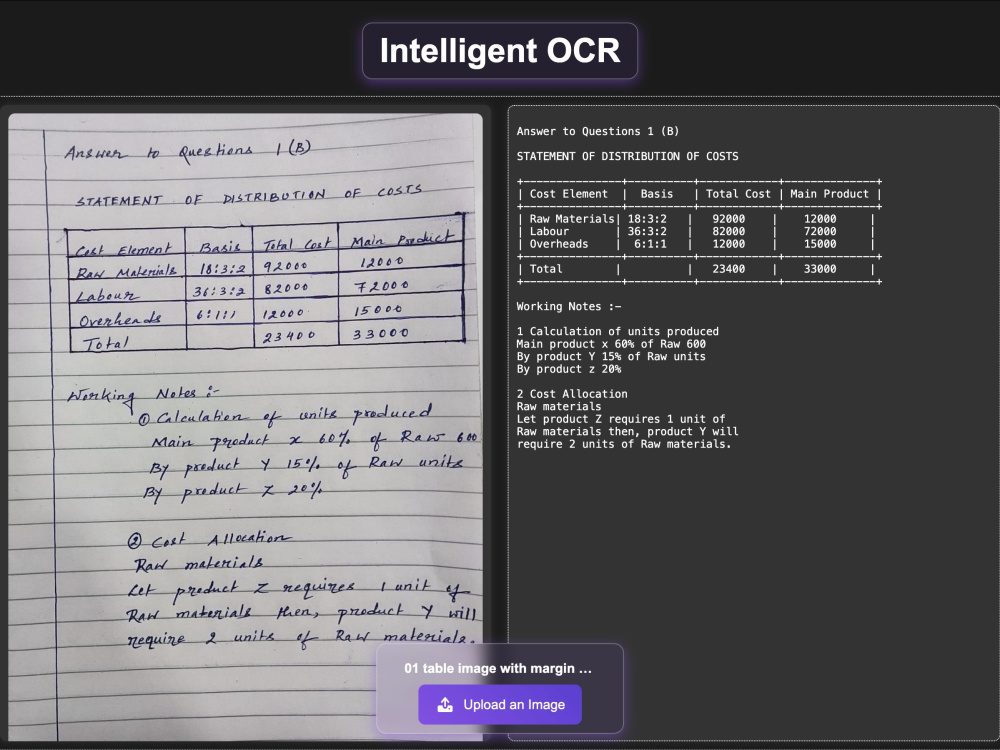 Intelligent OCR
Answer to Questions 1 (B)
STATEMENT OF DISTRIBUTION OF COSTS
Cost Element Basis Total Cost Main Product
Raw Materials 18:3:2 92000 12000
Labour 36:3:2 82000 72000
Overheads 6:1:1 12000 15000
Total 23400 33000
Working Notes :-
① Calculation of units produced
Main product x 60% of Raw 600
By product Y 15% of Raw units
By product Z 20%
② Cost Allocation
Raw materials
Let product Z requires 1 unit of
Raw materials then, product Y will
require 2 units of Raw materials.
Answer to Questions 1 (B)
STATEMENT OF DISTRIBUTION OF COSTS
| Cost Element | Basis | Total Cost | Main Product |
| Raw Materials| 18:3:2 | 92000 | 12000 |
| Labour | 36:3:2 | 82000 | 72000 |
| Overheads | 6:1:1 | 12000 | 15000 |
| Total | | 23400 | 33000 |
Working Notes :-
1 Calculation of units produced
Main product x 60% of Raw 600
By product Y 15% of Raw units
By product z 20%
2 Cost Allocation
Raw materials
Let product Z requires 1 unit of
Raw materials then, product Y will
require 2 units of Raw materials.
01 table image with margin ...
Upload an Image